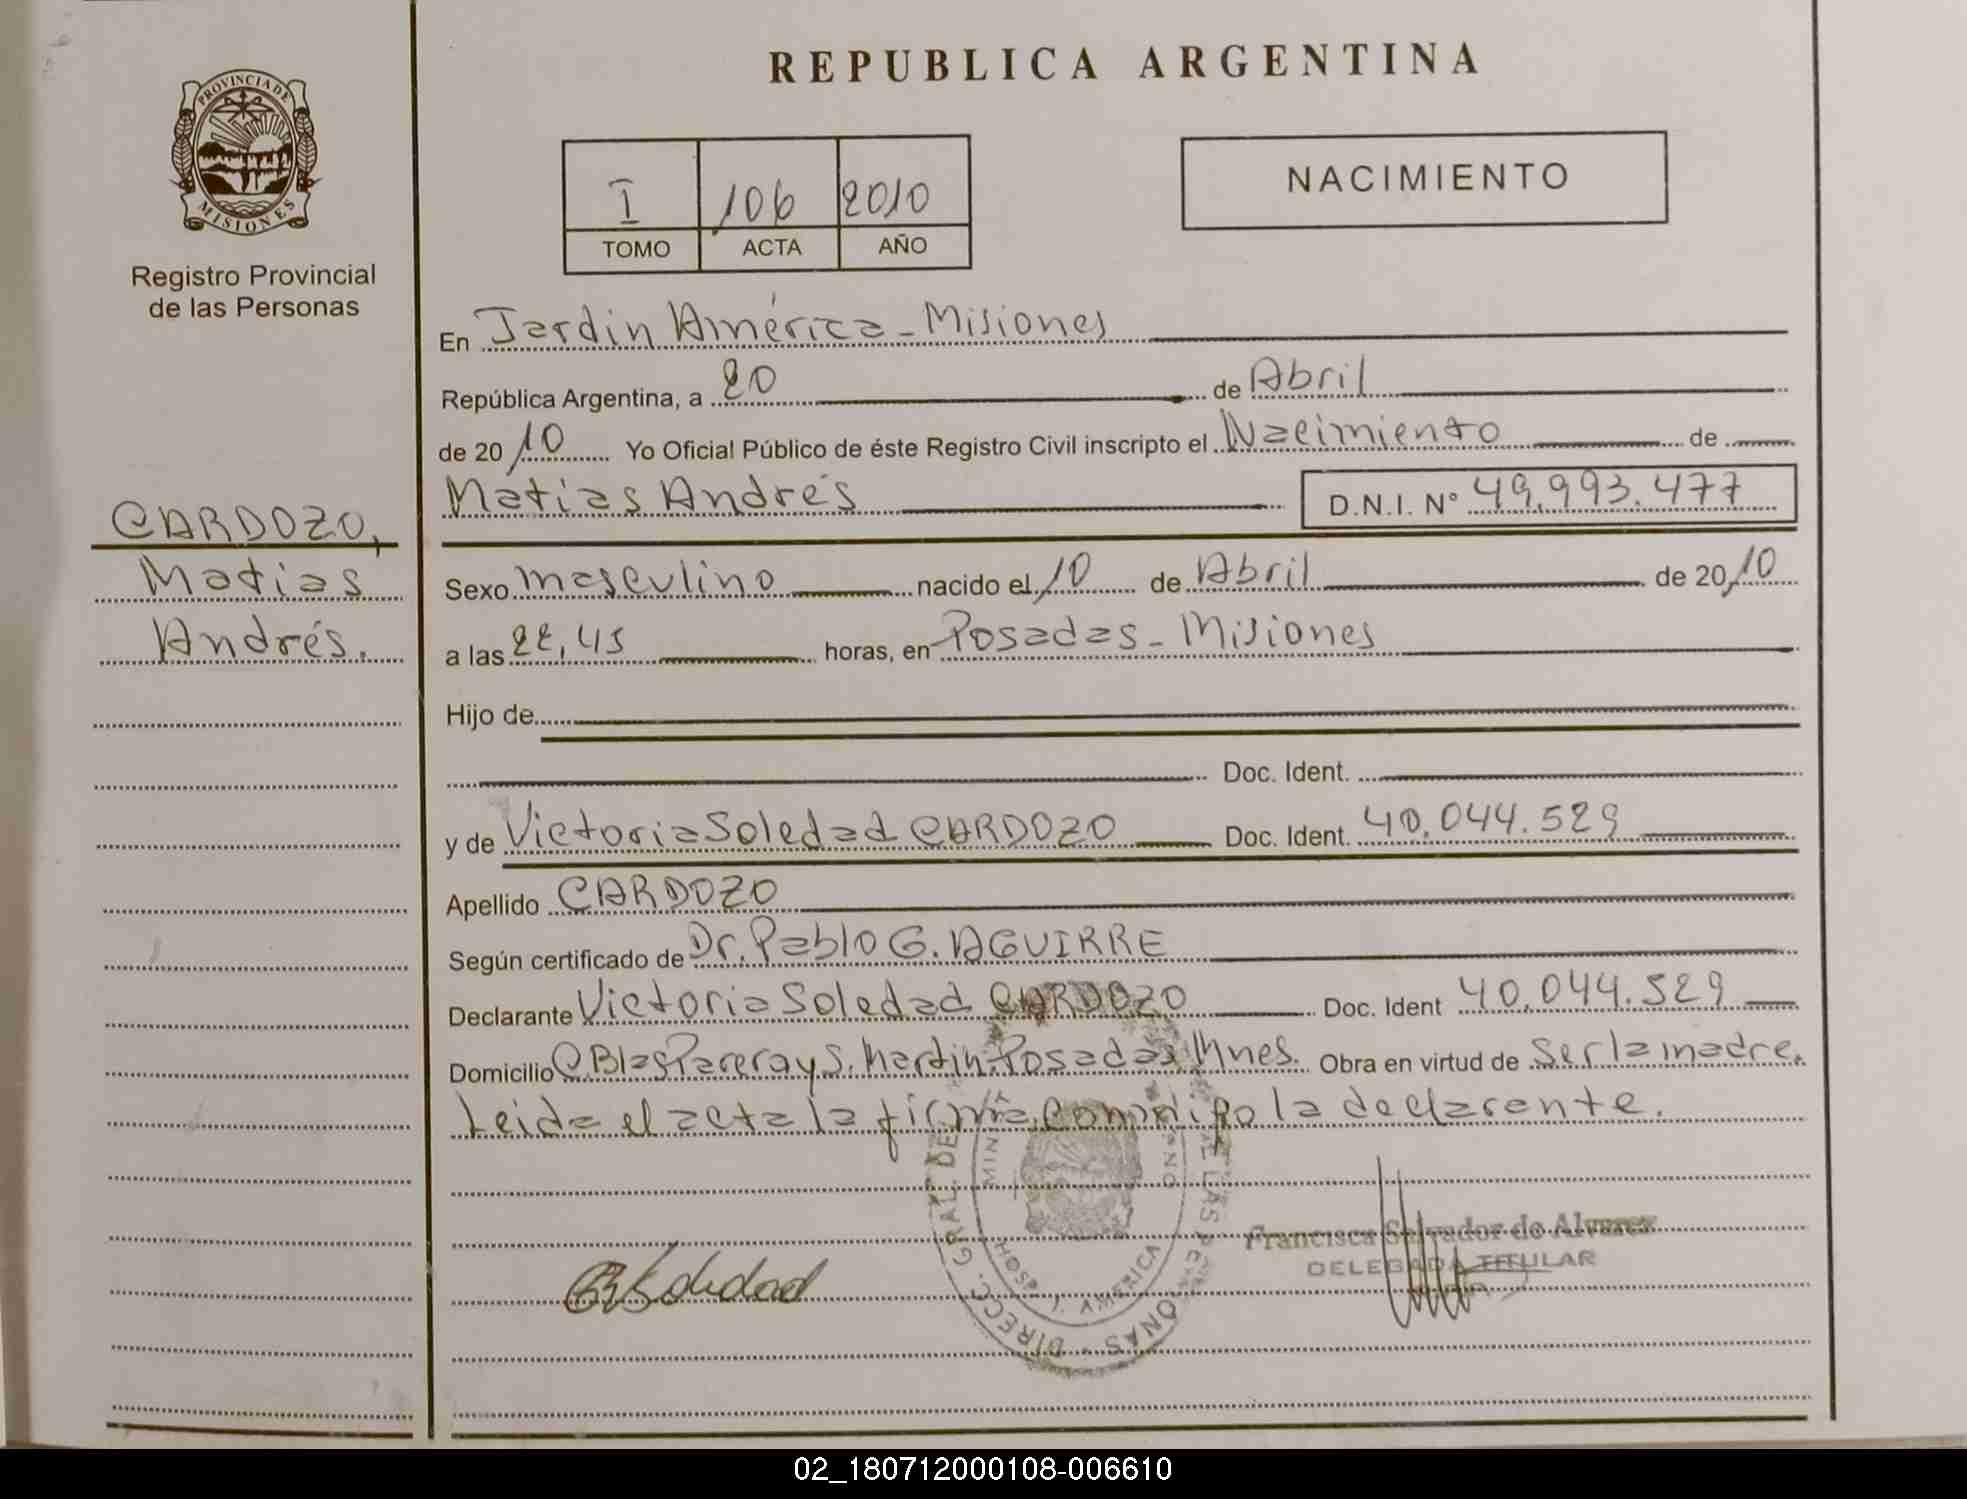 REPUBLICA ARGENTINA
PROVINCIA DE
MISIONES
Registro Provincial
de las Personas
I 106 2010
TOMO ACTA AÑO
NACIMIENTO
En Jardin América - Misiones
República Argentina, a 20 de Abril
de 2010 Yo Oficial Público de éste Registro Civil inscripto el Nacimiento de
Matias Andrés D.N.I. N° 49.993.477
CARDOZO,
Matias
Andrés.
Sexo masculino nacido el 10 de Abril de 2010
a las 22,45 horas, en Posadas - Misiones
Hijo de
Doc. Ident.
y de Victoria Soledad CARDOZO Doc. Ident. 40.044.529
Apellido CARDOZO
Según certificado de Dr. Pablo G. AGUIRRE
Declarante Victoria Soledad CARDOZO Doc. Ident 40.044.529
Domicilio C. Blas Parera y S. Martin. Posadas Mnes. Obra en virtud de Ser la madre.
Leida el acta la firma conmigo la declarante.
Francisca Salvador de Alvarez
DELEGADA TITULAR
Soledad
DIRECC. GRAL. DE LAS PERSONAS
J. AMERICA
02_180712000108-006610